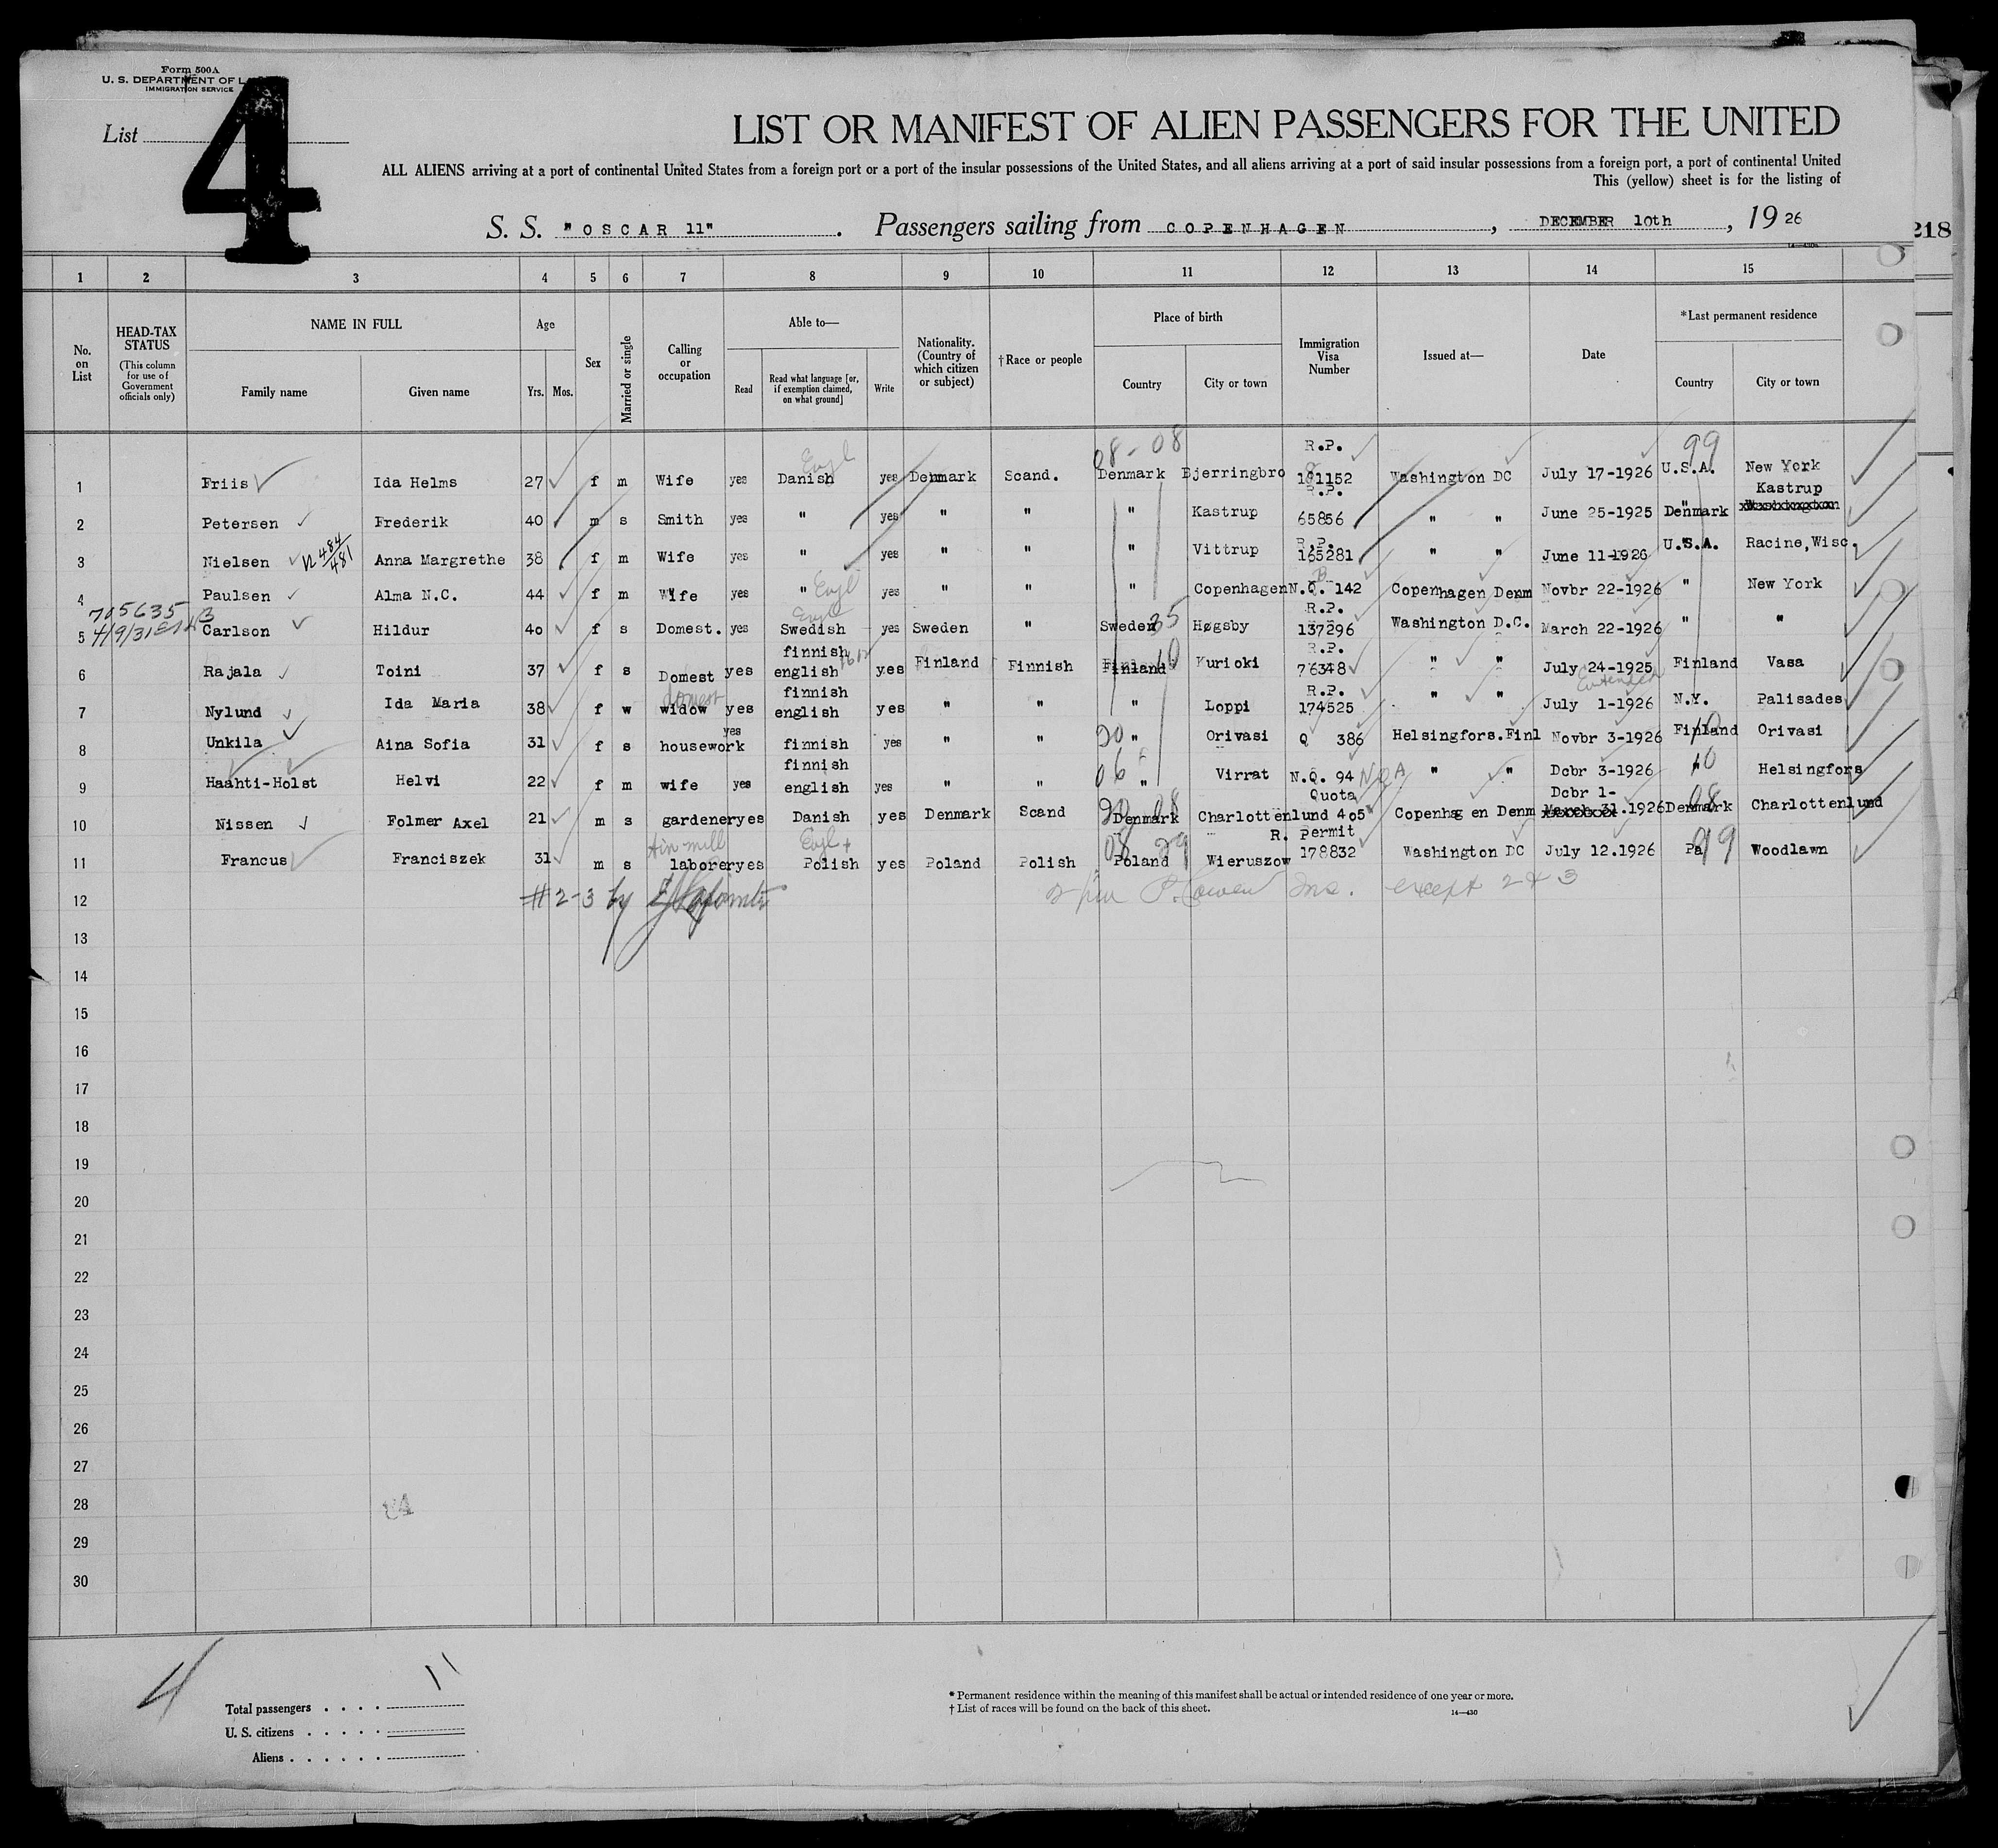 Form 500A
U. S. DEPARTMENT OF
IMMIGRATION SERVICE
List 4
LIST OR MANIFEST OF ALIEN PASSENGERS FOR THE UNITED
ALL ALIENS arriving at a port of continental United States from a foreign port or a port of the insular possessions of the United States, and all aliens arriving at a port of said insular possessions from a foreign port, a port of continental United
This (yellow) sheet is for the listing of
S. S. "OSCAR 11". Passengers sailing from COPENHAGEN, DECEMBER 10th, 1926
218
1 2 3 4 5 6 7 8 9 10 11 12 13 14 15
No. on List
HEAD-TAX STATUS (This column for use of Government officials only)
NAME IN FULL Family name Given name
Age Yrs. Mos.
Sex
Married or single
Calling or occupation
Able to— Read Read what language [or, if exemption claimed, on what ground] Write
Nationality. (Country of which citizen or subject)
†Race or people
Place of birth Country City or town
Immigration Visa Number
Issued at—
Date
*Last permanent residence Country City or town
08-08 R.P. 99
1 Friis Ida Helms 27 f m Wife yes Danish Engl yes Denmark Scand. Denmark Bjerringbro 181152 Washington DC July 17-1926 U.S.A. New York
2 Petersen Frederik 40 m s Smith yes " yes " " " Kastrup R.P. 65856 " " June 25-1925 Denmark Kastrup
3 Nielsen N 484/481 Anna Margrethe 38 f m Wife yes " yes " " " Vittrup R.P. 165281 " " June 11-1926 U.S.A. Racine, Wisc.
4 Paulsen Alma N.C. 44 f m Wife yes " Engl yes " " " Copenhagen N.Q. 142 Copenhagen Denm Novbr 22-1926 " New York
705635
5 4/9/31 Carlson Hildur 40 f s Domest. yes Swedish Engl yes Sweden " Sweden 35 Høgsby R.P. 137296 Washington D.C. March 22-1926 " "
6 Rajala Toini 37 f s Domest yes finnish english yes Finland Finnish Finland 10 Kurioki R.P. 76348 " " July 24-1925 Finland Vasa
7 Nylund Ida Maria 38 f w widow domest yes finnish english yes " " " Loppi R.P. 174525 " " July 1-1926 Extended N.Y. Palisades
8 Unkila Aina Sofia 31 f s housework yes finnish yes " " 20 " Orivasi Q 386 Helsingfors.Finl Novbr 3-1926 Finland 10 Orivasi
9 Haahti-Holst Helvi 22 f m wife yes finnish english yes " " 06 " Virrat N.Q. 94 NQA " " Dcbr 3-1926 10 Helsingfors
10 Nissen Folmer Axel 21 m s gardener yes Danish yes Denmark Scand 20 08 Denmark Charlottenlund Quota 405 Copenhagen Denm Dcbr 1- March 31.1926 Denmark 08 Charlottenlund
11 Francus Franciszek 31 m s tin mill laborer yes Engl + Polish yes Poland Polish 08 29 Poland Wieruszow R. permit 178832 Washington DC July 12.1926 Pa 99 Woodlawn
12 #2-3 by Ins. except 2 & 3
13
14
15
16
17
18
19
20
21
22
23
24
25
26
27
28
29
30
4
Total passengers . . . . 11
U. S. citizens . . . . .
Aliens . . . . . .
* Permanent residence within the meaning of this manifest shall be actual or intended residence of one year or more.
† List of races will be found on the back of this sheet.
14—430